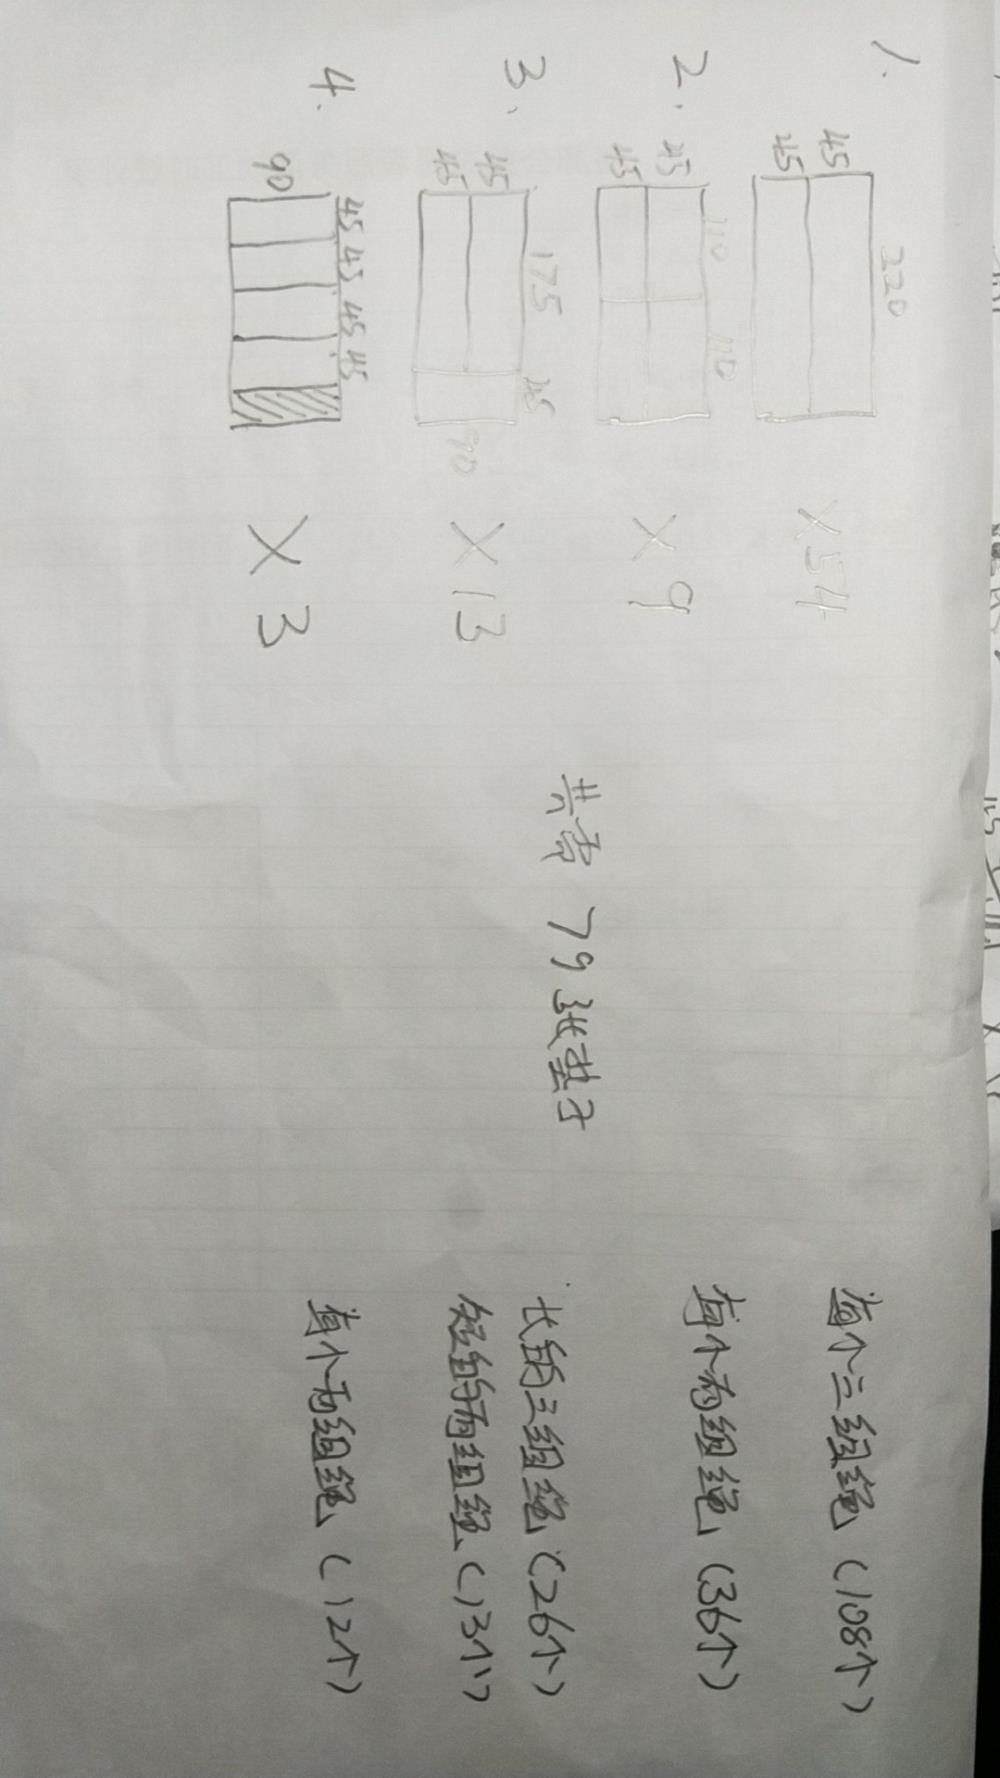 1.
45
45
220
×54
每个三组绳(108个)
2.
45
45
110
110
×9
每个两组绳(36个)
3、
45
45
175
45
90
×13
长的三组绳(26个)
短的两组绳(13个)
4.
90
45 45 45 45
×3
每个两组绳(12个)
共需 79 张垫子